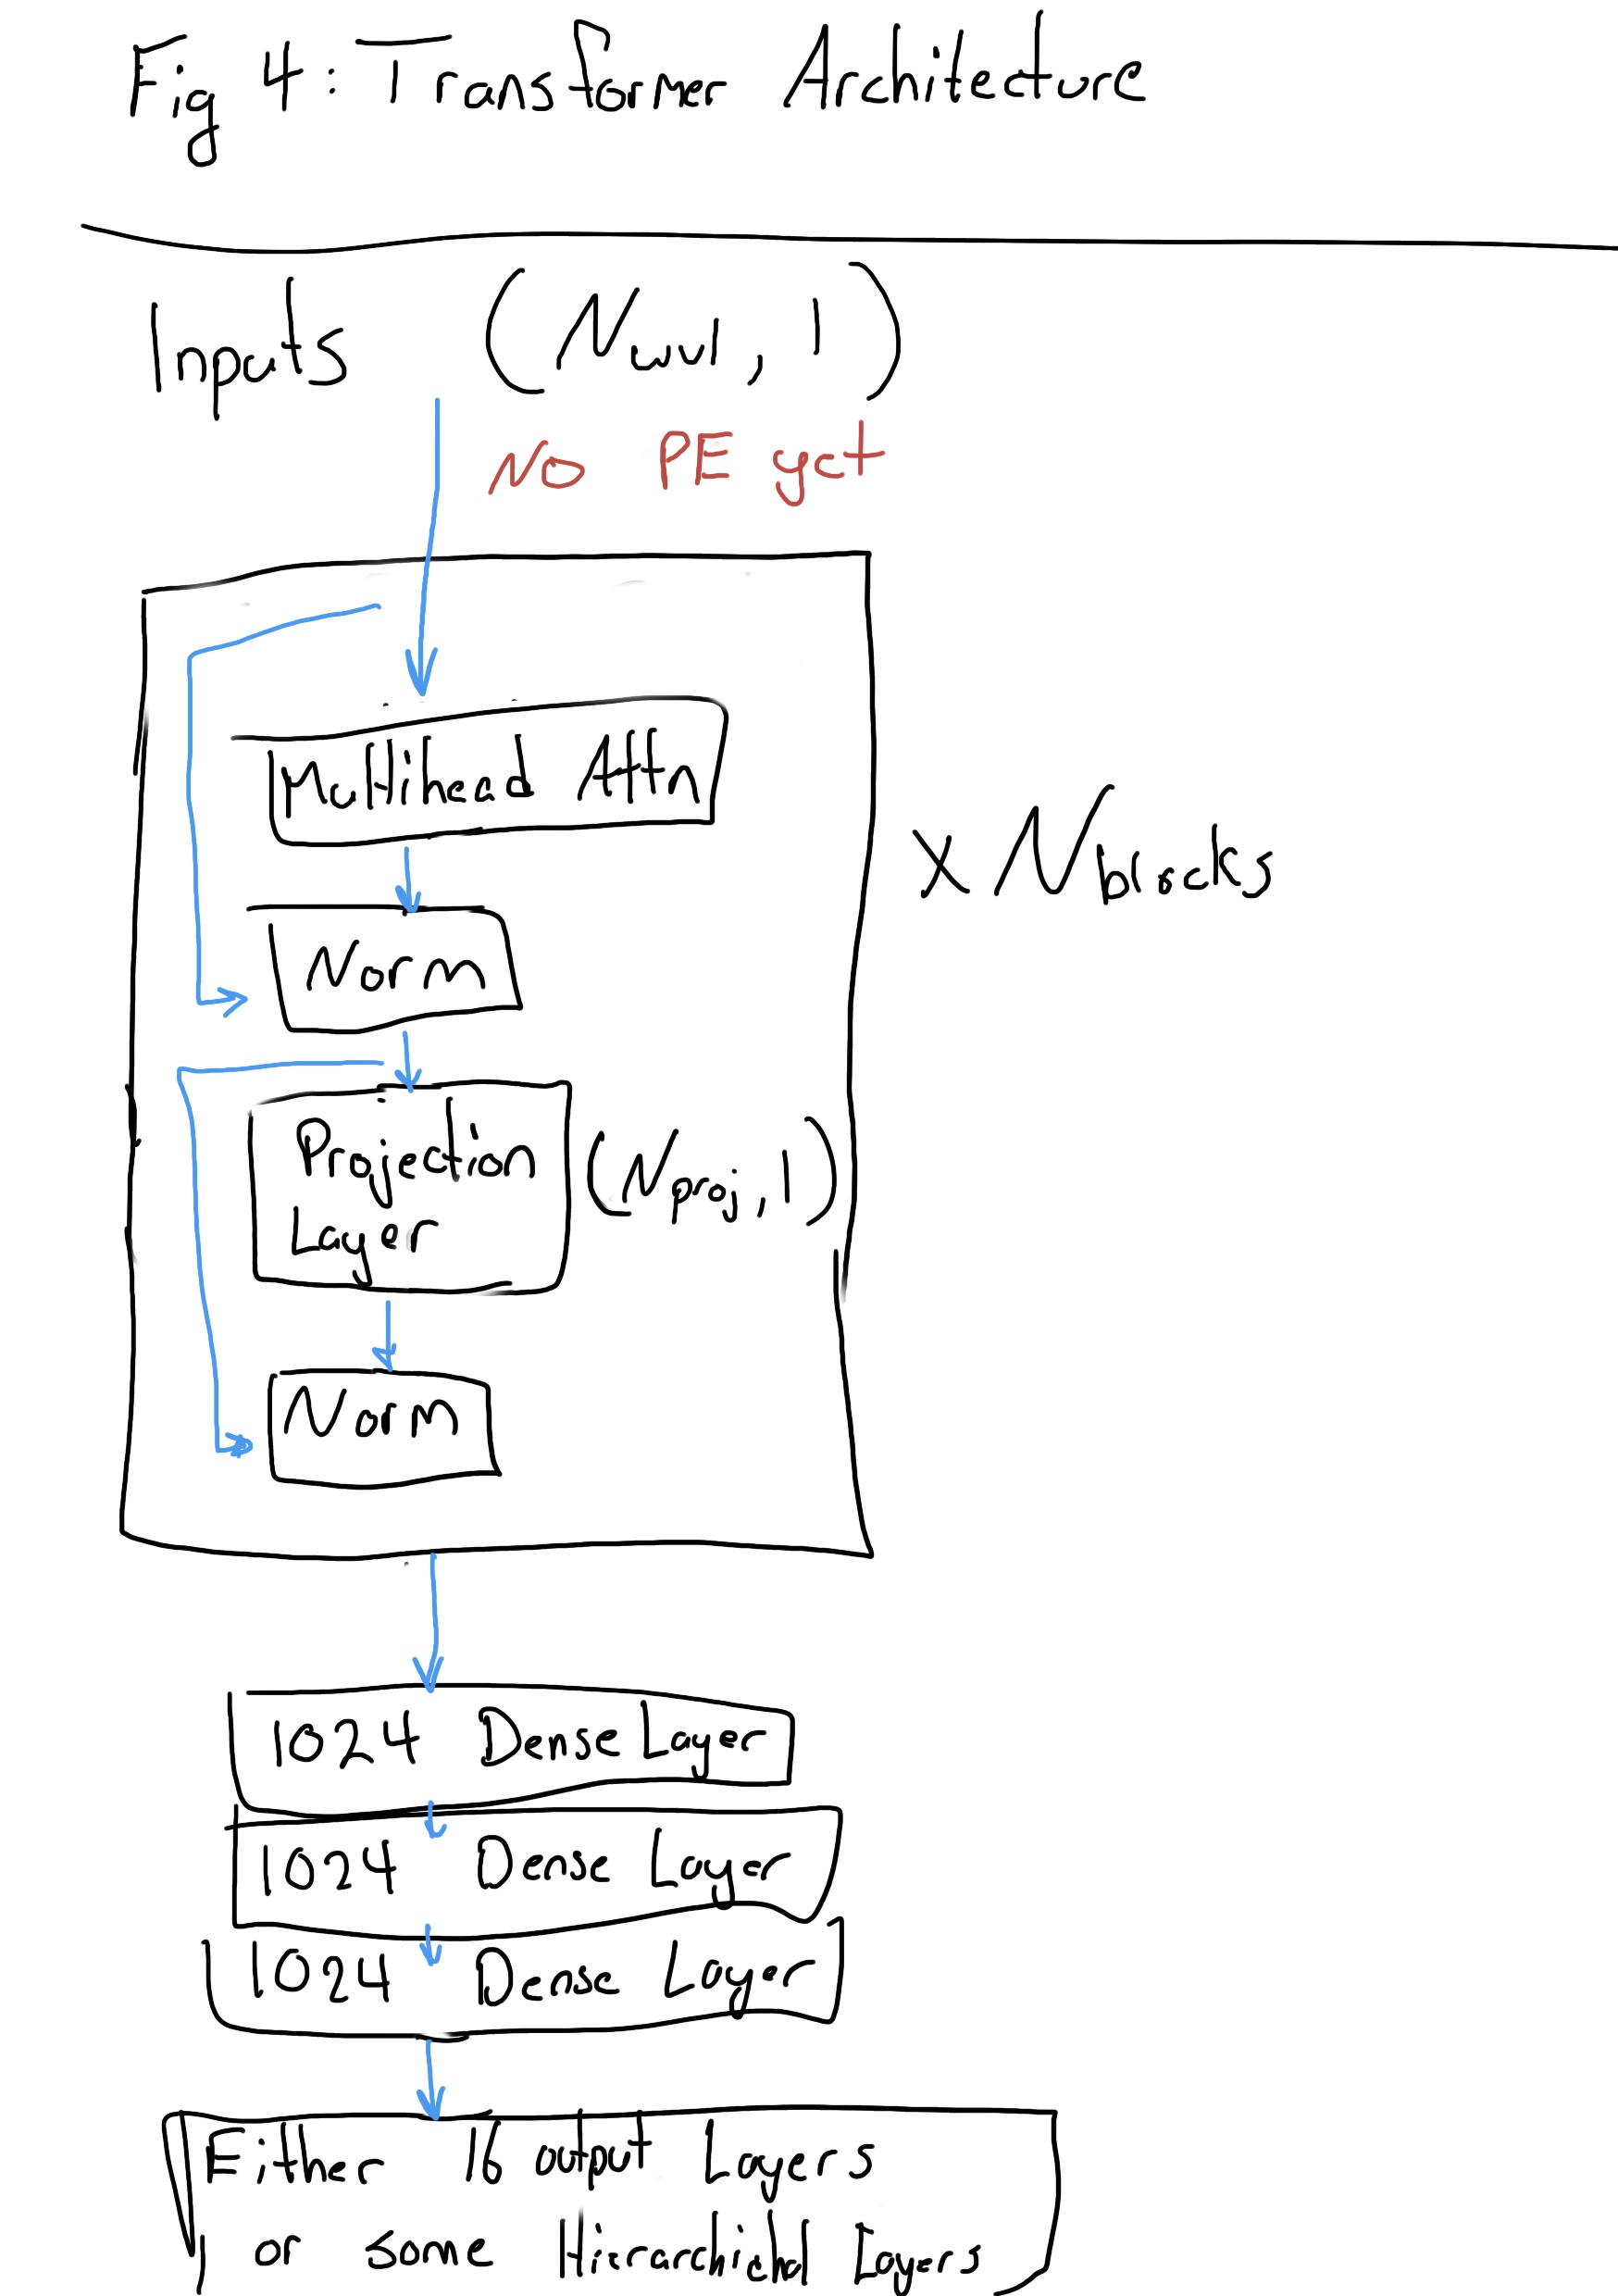 Fig 4: Transformer Architecture
Inputs (N_wvl, 1)
No PE yet
Multihead Attn
x N_blocks
Norm
Projection
Layer
(N_proj, 1)
Norm
1024 Dense Layer
1024 Dense Layer
1024 Dense Layer
Either 16 output Layers
or some Hierarchichal Layers